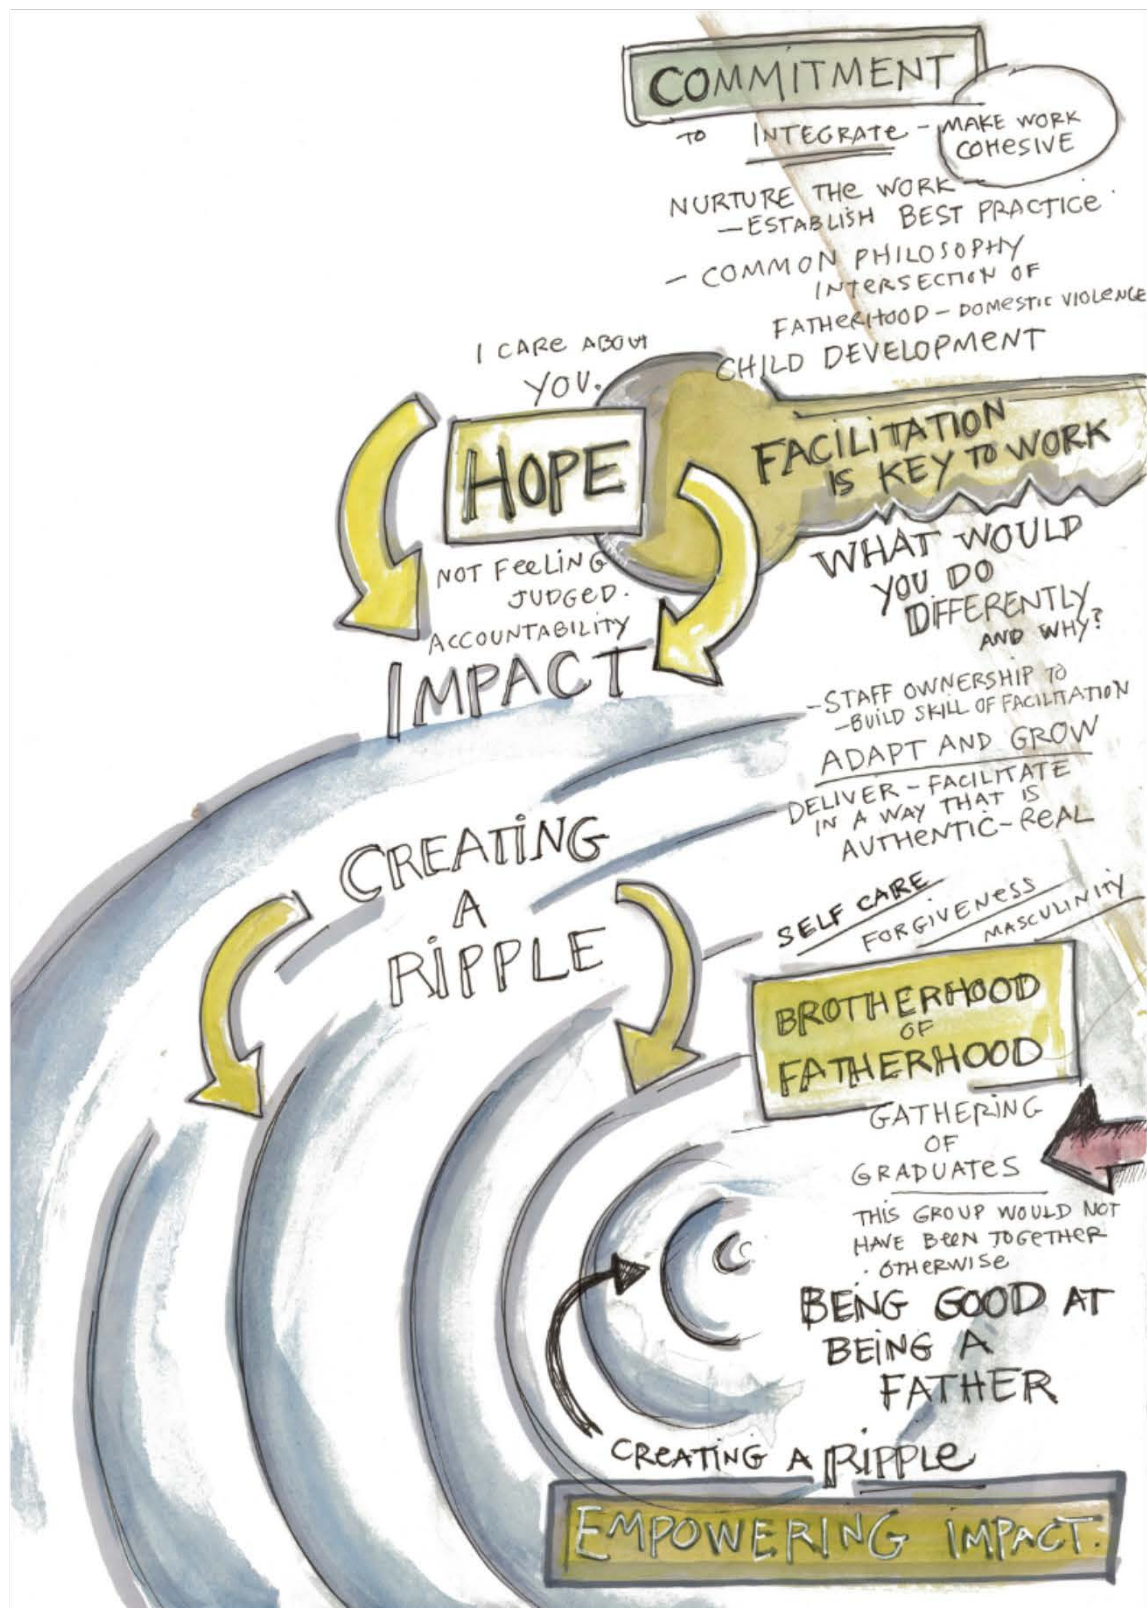 COMMITMENT
TO INTEGRATE - MAKE WORK
COHESIVE
NURTURE THE WORK -
- ESTABLISH BEST PRACTICE.
- COMMON PHILOSOPHY
INTERSECTION OF
FATHERHOOD - DOMESTIC VIOLENCE
CHILD DEVELOPMENT
I CARE ABOUT
YOU.
HOPE
FACILITATION
IS KEY TO WORK
NOT FEELING
JUDGED.
ACCOUNTABILITY
IMPACT
WHAT WOULD
YOU DO
DIFFERENTLY
AND WHY?
- STAFF OWNERSHIP TO
- BUILD SKILL OF FACILITATION
ADAPT AND GROW
DELIVER - FACILITATE
IN A WAY THAT IS
AUTHENTIC - REAL
CREATING
A
RIPPLE
SELF CARE
FORGIVENESS
MASCULINITY
BROTHERHOOD
OF
FATHERHOOD
GATHERING
OF
GRADUATES
THIS GROUP WOULD NOT
HAVE BEEN TOGETHER
. OTHERWISE
BEING GOOD AT
BEING A
FATHER
CREATING A RIPPLE
EMPOWERING IMPACT.